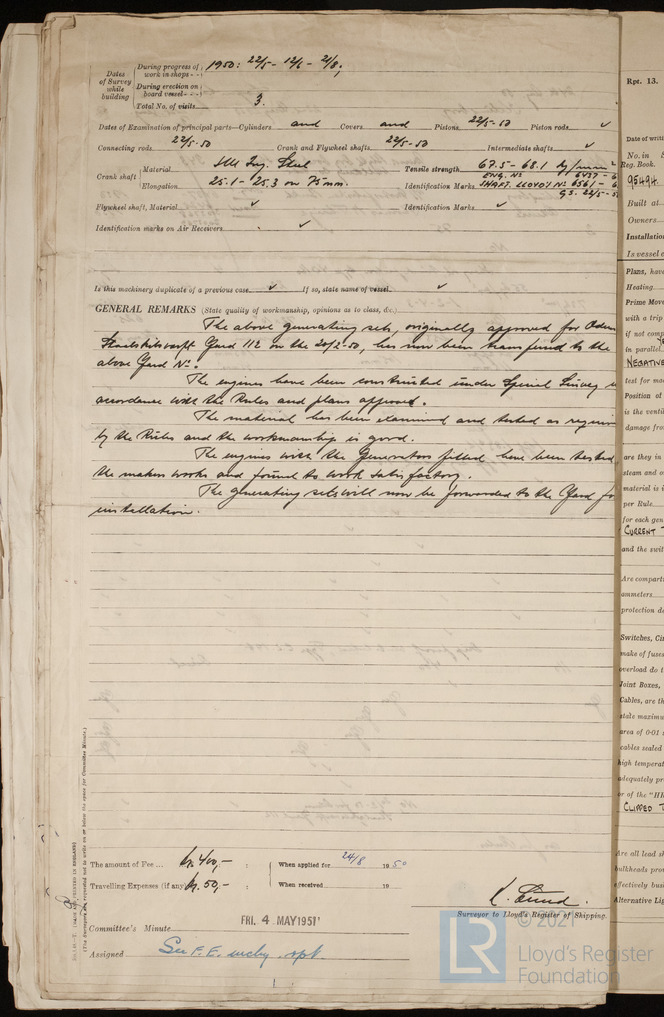 Dates of Survey while building
During progress of work in shops - - 1950: 22/5 - 12/6 - 2/8;
During erection on board vessel - - -
Total No. of visits 3.
Dates of Examination of principal parts—Cylinders and Covers and Pistons 22/5-50 Piston rods ✓
Connecting rods 22/5-50 Crank and Flywheel shafts 22/5-50 Intermediate shafts ✓
Crank shaft Material SM Ing. Steel Tensile strength 67.5 - 68.1
Elongation 25.1 - 25.3 on 75 mm. Identification Marks ENG. No 6437 - 6
SHAFT. LLOYD'S No 6561 - 6
GS. 22/5-50
Flywheel shaft, Material ✓ Identification Marks ✓
Identification marks on Air Receivers ✓
Is this machinery duplicate of a previous case ✓ If so, state name of vessel ✓
GENERAL REMARKS (State quality of workmanship, opinions as to class, &c.)
The above generating sets, originally approved for Odense
Staalskibsvaerft Yard 112 on the 20/2-50, has now been transferred to the
above Yard No.
The engines have been constructed under Special Survey
accordance with the Rules and plans approved.
The material has been examined and tested as
by the Rules and the workmanship is good.
The engines with the Generators fitted have been tested
the makers works and found to work satisfactory.
The generating sets will now be forwarded to the Yard
installation.
The amount of Fee ... kr. 400,- : When applied for 24/8 1950
Travelling Expenses (if any) kr. 50,- : When received 19
Surveyor to Lloyd's Register of Shipping.
Committee's Minute FRI. 4 MAY 1951
Assigned See F.E. mchy. rpt.
(The Surveyors are requested not to write on or below the space for Committee Minute.)
Rpt. 13.
Date of writ
No. in
Reg. Book.
95494
Built at
Owners
Installation
Is vessel e
Plans, have
Heating
Prime Move
with a trip
if not comp
in parallel
NEGATIVE
test for mac
Position of
is the ventil
damage from
are they in
steam and o
material is i
per Rule
for each gen
CURRENT T
and the swit
Are compart
ammeters
protection de
Switches, Cir
make of fuses
overload do t
Joint Boxes,
Cables, are th
state maximu
area of 0·01 s
cables sealed
high temperat
adequately pr
or of the "HR
CLIPPED T
Are all lead sh
bulkheads prov
effectively bus
Alternative Lig
© 2021
LR
Lloyd's Register
Foundation